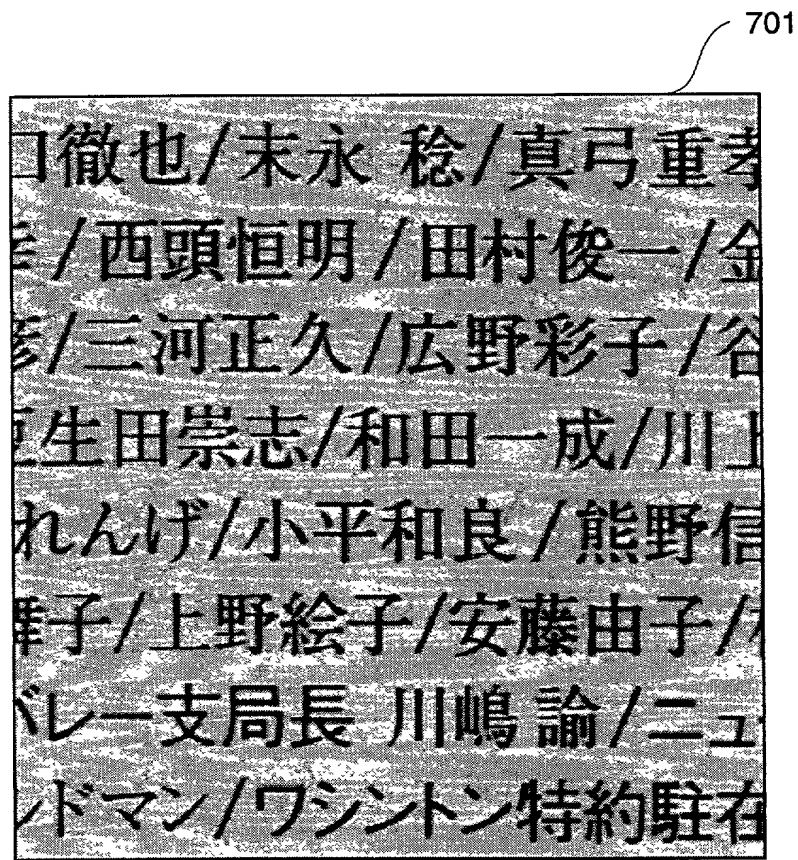 701
口徹也/末永 稔/真弓重孝
/西頭恒明/田村俊一/金
彦/三河正久/広野彩子/谷
生田崇志/和田一成/川上
れんげ/小平和良/熊野信
舞子/上野絵子/安藤由子/
バレー支局長 川嶋 諭/ニュー
ンドマン/ワシントン特約駐在